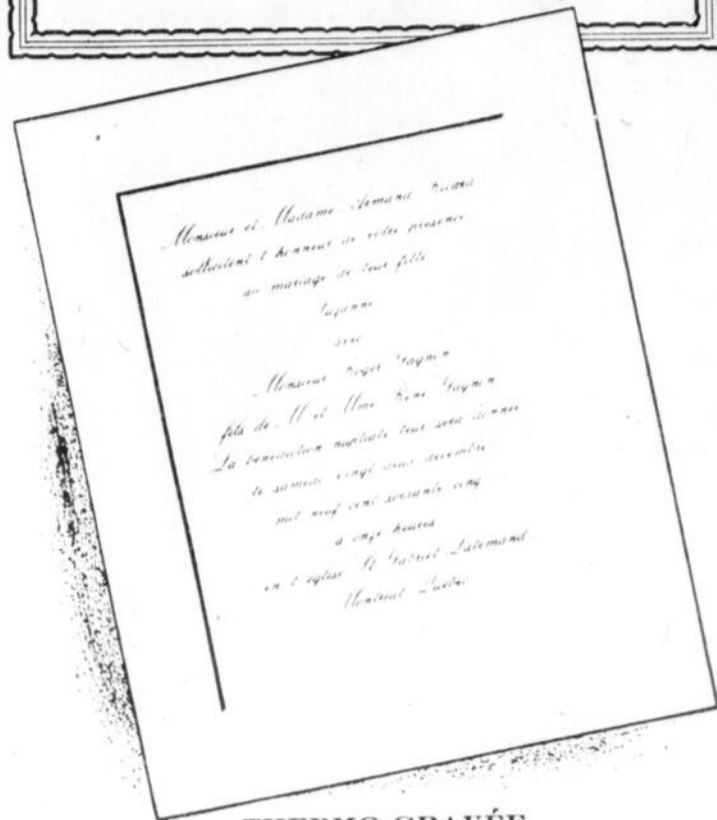 Monsieur et Madame Armand Ricard
sollicitent l'honneur de votre présence
au mariage de leur fille
Suzanne
avec
Monsieur Roger Gagnon
fils de M. et Mme René Gagnon
La bénédiction nuptiale leur sera donnée
le samedi vingt deux décembre
mil neuf cent soixante cinq
à onze heures
en l'église St Gabriel Lalemand
Montréal Québec
THERMO-GRAVÉE